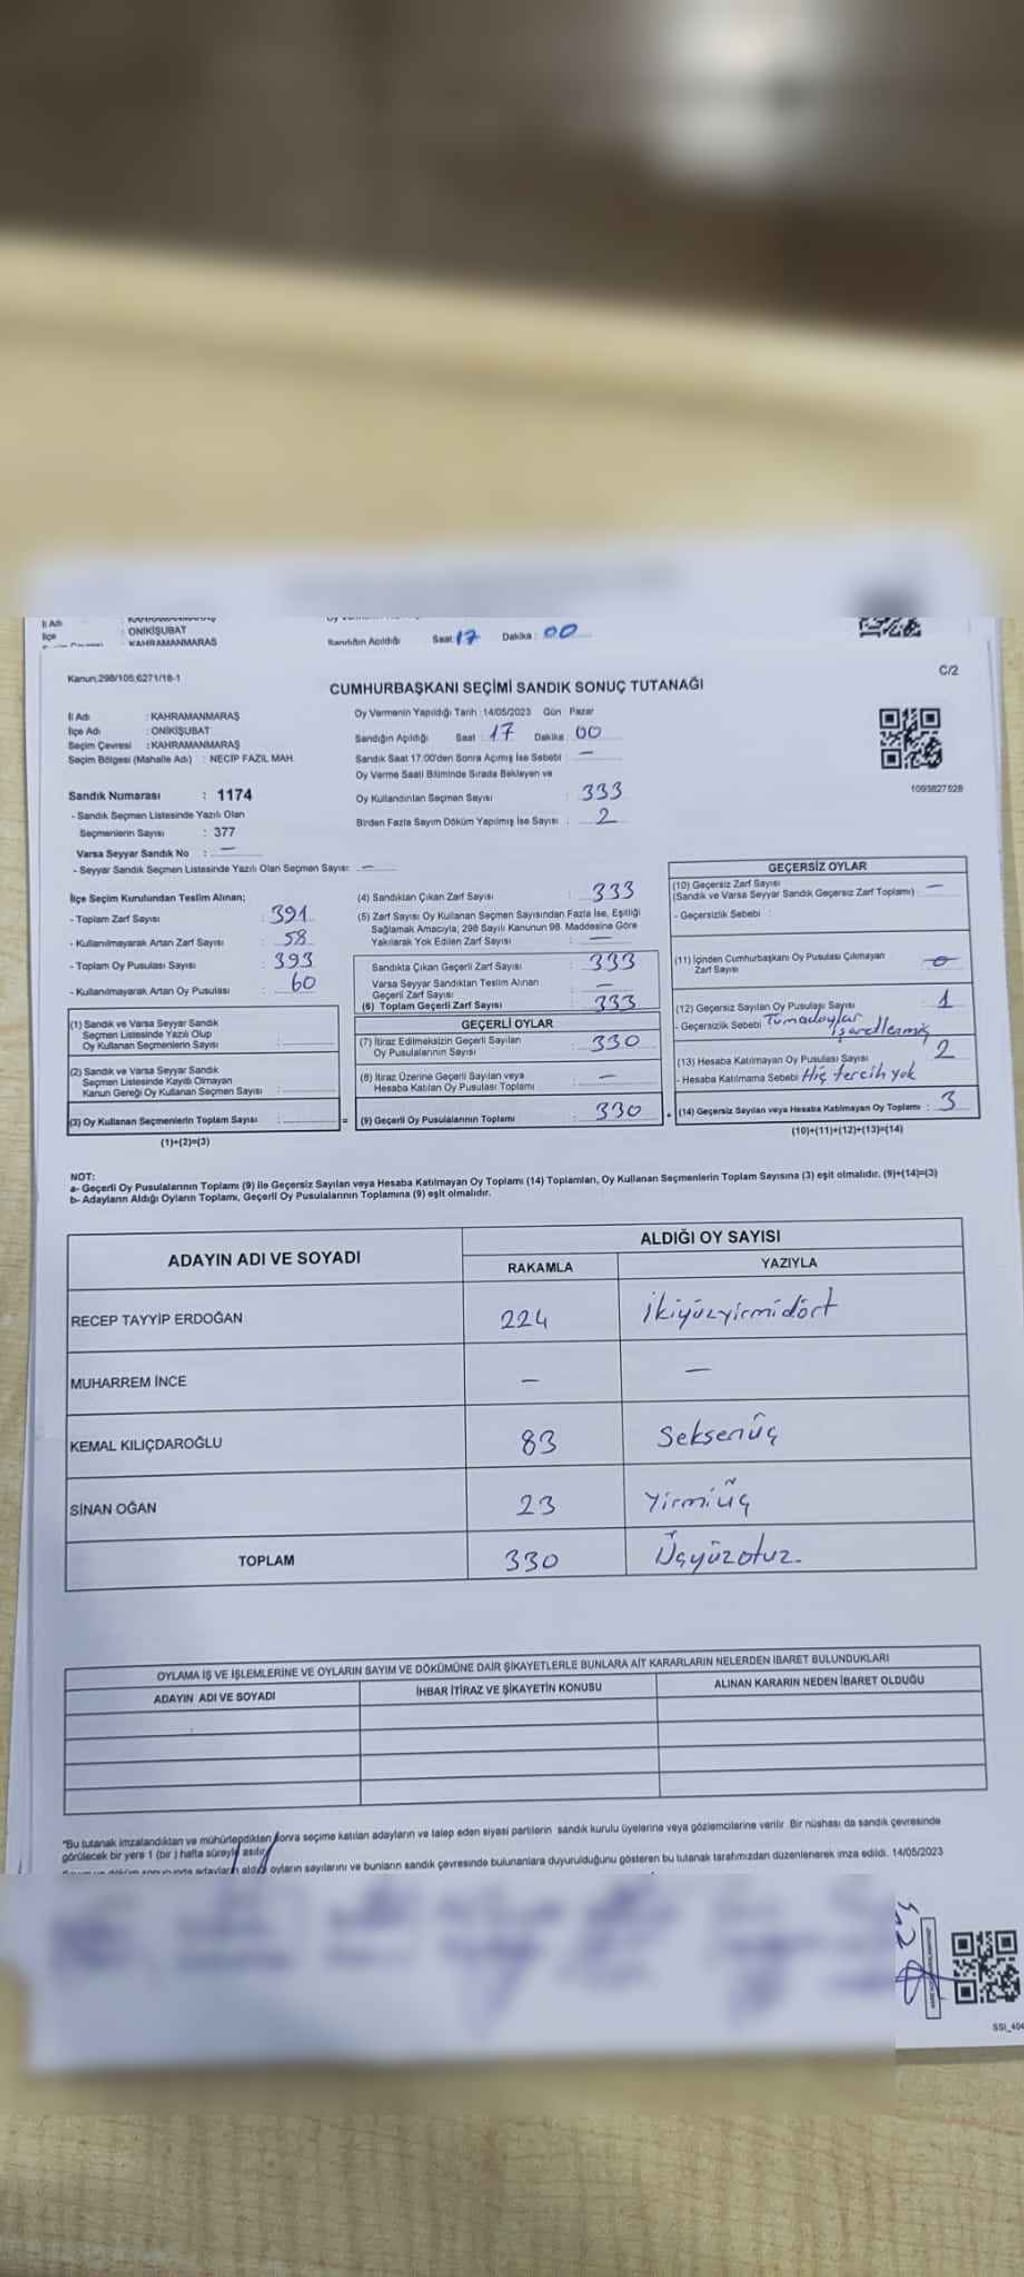 İl Adı
İlçe : ONİKİŞUBAT
: KAHRAMANMARAŞ
Sandığın Açıldığı Saat 17 Dakika : 00
Kanun:298/105,6271/18-1
C/2
CUMHURBAŞKANI SEÇİMİ SANDIK SONUÇ TUTANAĞI
İl Adı : KAHRAMANMARAŞ
İlçe Adı : ONİKİŞUBAT
Seçim Çevresi : KAHRAMANMARAŞ
Seçim Bölgesi (Mahalle Adı) : NECİP FAZIL MAH.
Sandık Numarası : 1174
- Sandık Seçmen Listesinde Yazılı Olan
Seçmenlerin Sayısı : 377
Varsa Seyyar Sandık No : —
- Seyyar Sandık Seçmen Listesinde Yazılı Olan Seçmen Sayısı: —
Oy Vermenin Yapıldığı Tarih :14/05/2023 Gün Pazar
Sandığın Açıldığı Saat : 17 Dakika : 00
Sandık Saat 17:00'den Sonra Açımış İse Sebebi : —
Oy Verme Saati Bitiminde Sırada Bekleyen ve
Oy Kullandırılan Seçmen Sayısı : 333
Birden Fazla Sayım Döküm Yapılmış İse Sayısı : 2
1093827528
İlçe Seçim Kurulundan Teslim Alınan;
- Toplam Zarf Sayısı : 391
- Kullanılmayarak Artan Zarf Sayısı : 58
- Toplam Oy Pusulası Sayısı : 393
- Kullanılmayarak Artan Oy Pusulası : 60
(1) Sandık ve Varsa Seyyar Sandık
Seçmen Listesinde Yazılı Olup
Oy Kullanan Seçmenlerin Sayısı :
(2) Sandık ve Varsa Seyyar Sandık
Seçmen Listesinde Kayıtlı Olmayan
Kanun Gereği Oy Kullanan Seçmen Sayısı :
(3) Oy Kullanan Seçmenlerin Toplam Sayısı :
(1)+(2)=(3)
(4) Sandıktan Çıkan Zarf Sayısı : 333
(5) Zarf Sayısı Oy Kullanan Seçmen Sayısından Fazla İse, Eşitliği
Sağlamak Amacıyla, 298 Sayılı Kanunun 98. Maddesine Göre
Yakılarak Yok Edilen Zarf Sayısı : —
Sandıkta Çıkan Geçerli Zarf Sayısı : 333
Varsa Seyyar Sandıktan Teslim Alınan
Geçerli Zarf Sayısı : —
(6) Toplam Geçerli Zarf Sayısı : 333
GEÇERLİ OYLAR
(7) İtiraz Edilmeksizin Geçerli Sayılan
Oy Pusulalarının Sayısı : 330
(8) İtiraz Üzerine Geçerli Sayılan veya
Hesaba Katılan Oy Pusulası Toplamı : —
= (9) Geçerli Oy Pusulalarının Toplamı : 330
GEÇERSİZ OYLAR
(10) Geçersiz Zarf Sayısı
(Sandık ve Varsa Seyyar Sandık Geçersiz Zarf Toplamı) : —
- Geçersizlik Sebebi :
(11) İçinden Cumhurbaşkanı Oy Pusulası Çıkmayan
Zarf Sayısı : 0
(12) Geçersiz Sayılan Oy Pusulası Sayısı : 1
- Geçersizlik Sebebi Tüm adaylar
işaretlenmiş
(13) Hesaba Katılmayan Oy Pusulası Sayısı : 2
- Hesaba Katılmama Sebebi Hiç tercih yok
(14) Geçersiz Sayılan veya Hesaba Katılmayan Oy Toplamı : 3
(10)+(11)+(12)+(13)=(14)
NOT:
a- Geçerli Oy Pusulalarının Toplamı (9) ile Geçersiz Sayılan veya Hesaba Katılmayan Oy Toplamı (14) Toplamları, Oy Kullanan Seçmenlerin Toplam Sayısına (3) eşit olmalıdır. (9)+(14)=(3)
b- Adayların Aldığı Oyların Toplamı, Geçerli Oy Pusulalarının Toplamına (9) eşit olmalıdır.
ADAYIN ADI VE SOYADI ALDIĞI OY SAYISI
RAKAMLA YAZIYLA
RECEP TAYYİP ERDOĞAN 224 İkiyüzyirmidört
MUHARREM İNCE — —
KEMAL KILIÇDAROĞLU 83 Seksenüç
SİNAN OĞAN 23 Yirmiüç
TOPLAM 330 Üçyüzotuz.
OYLAMA İŞ VE İŞLEMLERİNE VE OYLARIN SAYIM VE DÖKÜMÜNE DAİR ŞİKAYETLERLE BUNLARA AİT KARARLARIN NELERDEN İBARET BULUNDUKLARI
ADAYIN ADI VE SOYADI İHBAR İTİRAZ VE ŞİKAYETİN KONUSU ALINAN KARARIN NEDEN İBARET OLDUĞU
"Bu tutanak imzalandıktan ve mühürlendikten sonra seçime katılan adayların ve talep eden siyasi partilerin sandık kurulu üyelerine veya gözlemcilerine verilir. Bir nüshası da sandık çevresinde
görülecek bir yere 1 (bir ) hafta süreyle asılır.
oyların sayılarını ve bunların sandık çevresinde bulunanlara duyurulduğunu gösteren bu tutanak tarafımızdan düzenlenerek imza edildi. 14/05/2023